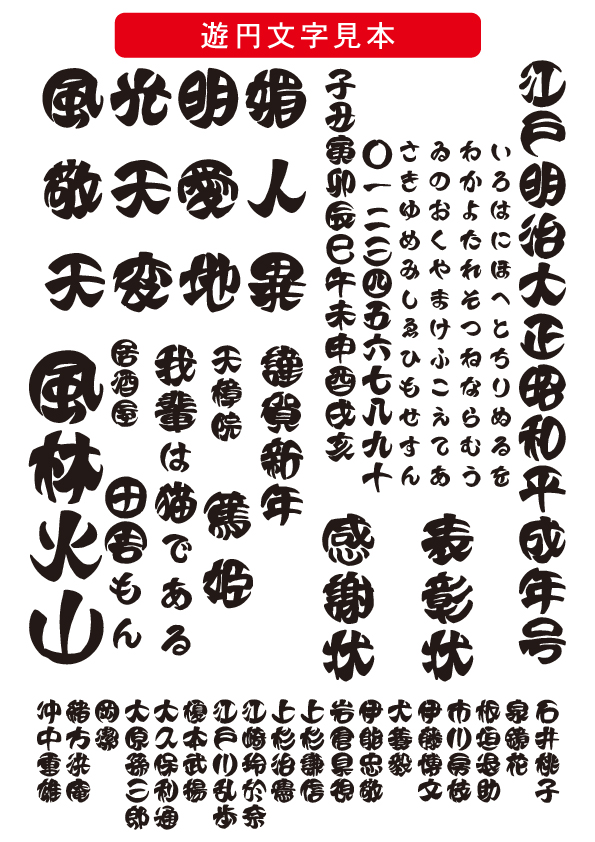 遊円文字見本
江戸明治大正昭和平成年号
いろはにほへとちりぬるを
わかよたれそつねならむう
ゐのおくやまけふこえてあ
さきゆめみしゑひもせすん
〇一二三四五六七八九十
子丑寅卯辰巳午未申酉戌亥
表彰状
感謝状
風光明媚
敬天愛人
天変地異
謹賀新年
天樟院
篤姫
我輩は猫である
居酒屋
田舎もん
風林火山
石井桃子
泉鏡花
板垣退助
市川房枝
伊藤博文
犬養毅
伊能忠敬
岩倉具視
上杉謙信
上杉治憲
江崎玲於奈
江戸川乱歩
榎本武揚
大久保利通
大原孫三郎
岡潔
緒方洪庵
沖中重雄